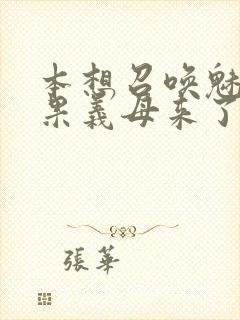 本想召唤魅
果義母来了
張華